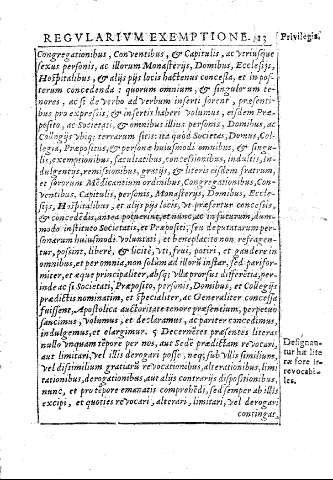 REGVLARIVM EXEMPTIONE. 23
Privilegia.
Congregationibus, Conventibus, & Capitulis, ac vtriusque
sexus personis, ac illorum Monasterijs, Domibus, Ecclesijs,
Hospitalibus, & alijs pijs locis hactenus concessa, et in pos-
terum concedenda: quorum omnium, & singulorum te-
nores, ac si de verbo ad verbum inserti forent, præsenti-
bus pro expressis, & insertis haberi volumus, eisdem Præ-
posito, ac Societati, & omnibus illius personis, Domibus, ac
Collegijs vbiq; terrarum sitis: ita quòd Societas, Domus, Col-
legia, Præpositus, & personæ huiusmodi omnibus, & singu-
lis, exemptionibus, facultatibus, concessionibus, indultis, in-
dulgentijs, remissionibus, gratijs, & literis eisdem fratrum,
et sororum Medicantium ordinibus, Congregationibus, Con-
ventibus, Capitulis, personis, Monasterijs, Domibus, Eccle-
sijs, Hospitalibus, et alijs pijs locis, vt præfertur concessis,
& concedēdis, antea potuerint, et nunc, ac in futurum, dum-
modo instituto Societatis, et Præpositi, seu deputatarum per-
sonarum huiusmodi voluntati, et beneplacito non refragen-
tur, possint, liberè, & licitè, vti, frui, potiri, et gaudere in
omnibus, et per omnia, non solùm ad illorū instar, sed parifor-
miter, et æque principaliter, absq; vlla prorsus differētia, per-
inde ac si Societati, Præposito, personis, Domibus, et Collegijs
prædictis nominatim, et specialiter, ac Generaliter concessa
fuissent, Apostolica auctoritate tenore præsentium, perpetuo
sancimus, volumus, et declaramus, ac pariter concedimus,
indulgemus, et elargimur. ¶ Decernētes præsentes literas
nullo vnquam tēpore per nos, aut Sedē prædictam revocari,
aut limitari, vel illis derogari posse, neq; sub vllis similium,
vel dissimilium gratiarū revocationibus, alterationibus, limi
tationibus, derogationibus, aut alijs contrarijs dispositionibus,
nunc, et pro tēpore emanatis comprehēdi, sed semper ab illis
excipi, et quoties revocari, alterari, limitari, vel derogari
contingat
Designan-
tur hæ lite
ræ fore ir-
revocabi-
les.